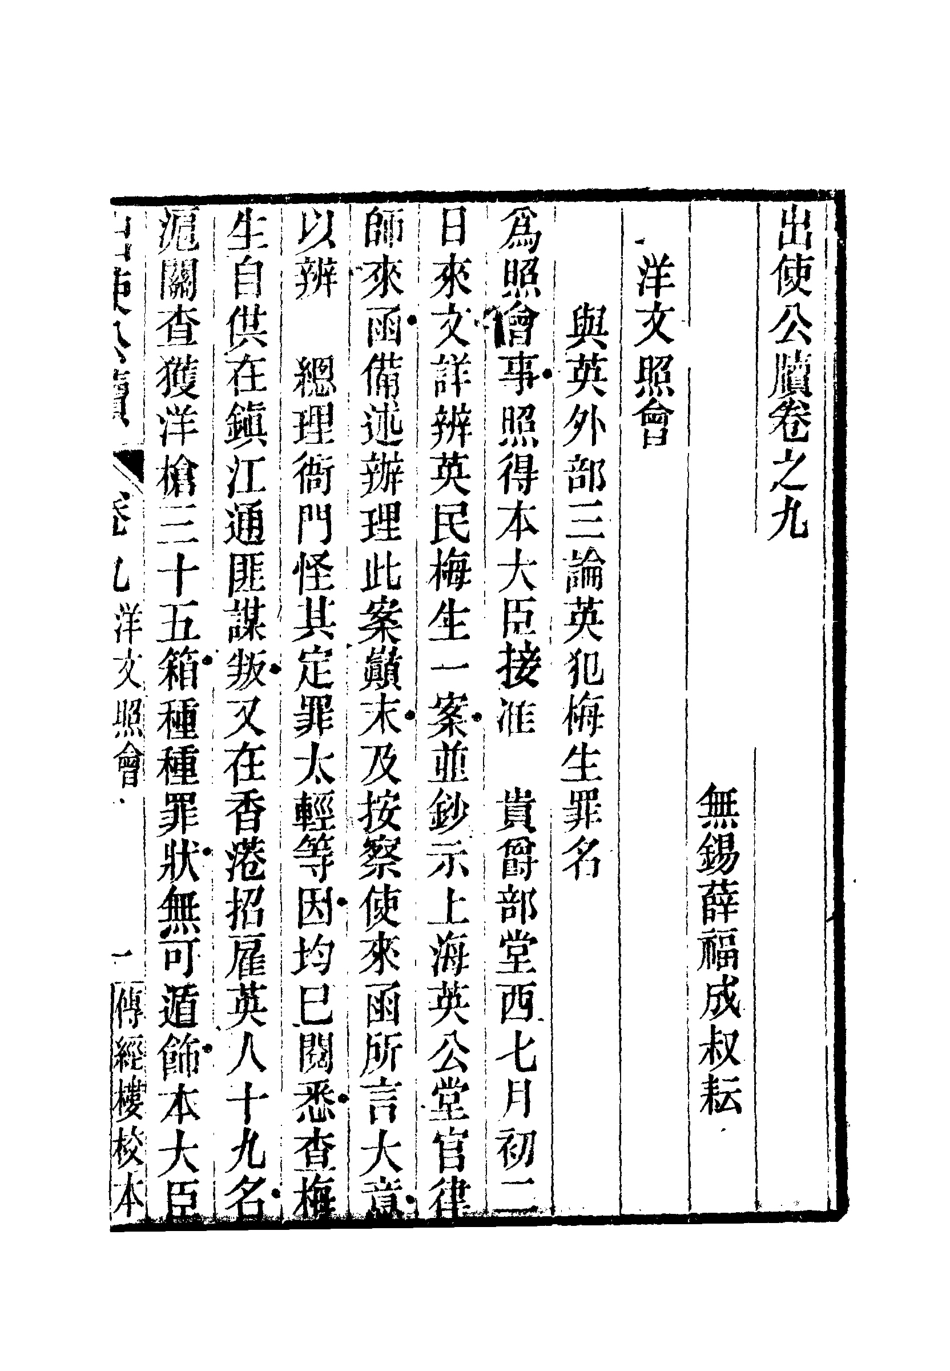 出使公牘卷之九
無錫薛福成叔耘
洋文照會
與英外部三論英犯梅生罪名
爲照會事照得本大臣接准　貴爵部堂西七月初二
日來文詳辨英民梅生一案並鈔示上海英公堂官律
師來函備述辦理此案巔末及按察使來函所言大意
以辨　總理衙門怪其定罪太輕等因均已閱悉查梅
生自供在鎭江通匪謀叛又在香港招雇英人十九名
滬關查獲洋槍三十五箱種種罪狀無可遁飾本大臣
出使公牘　卷九　洋文照會　一　傳經樓校本